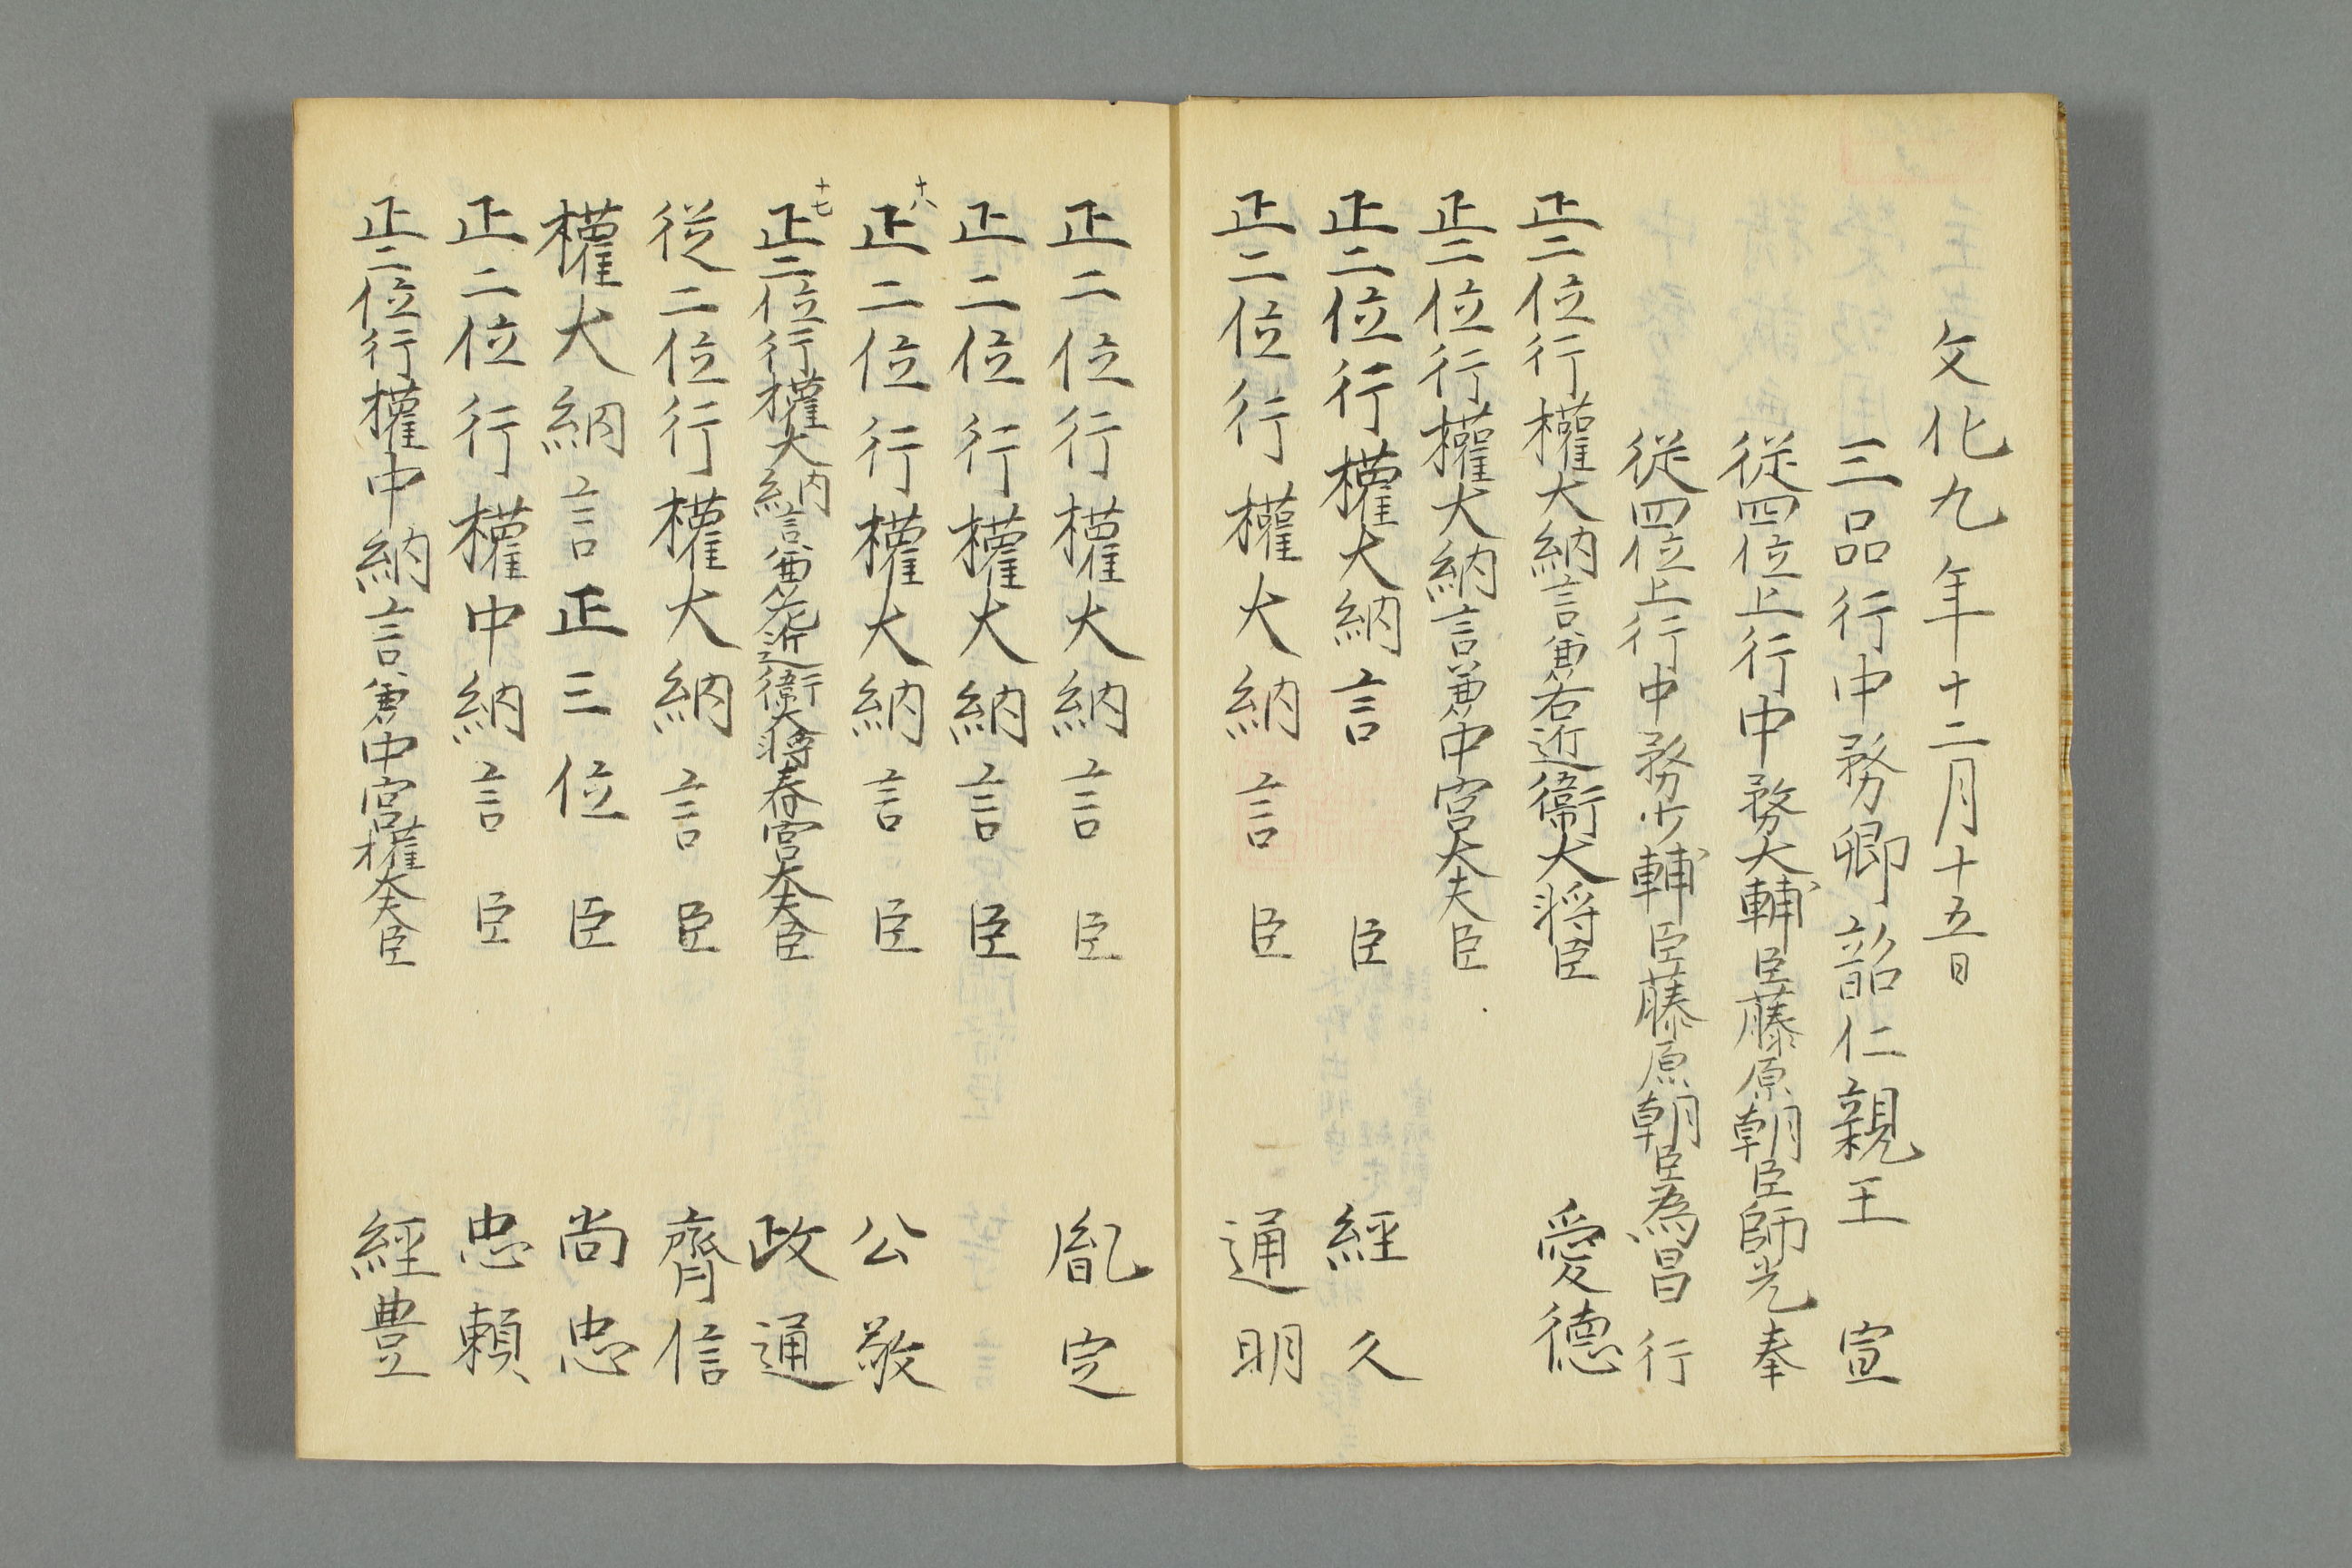 文化九年十二月十五日
三品行中務卿韶仁親王 宣
従四位上行中務大輔臣藤原朝臣師光奉
従四位上行中務少輔臣藤原朝臣為昌行
正二位行權大納言兼右近衞大将臣 愛德
正二位行權大納言兼中宮大夫臣
正二位行權大納言 臣 經久
正二位行權大納言 臣 通明
正二位行權大納言 臣 胤定
正二位行權大納言 臣
十八
正二位行權大納言 臣 公敬
十七
正二位行權大納言兼左近衞大将春宮大夫臣 政通
従二位行權大納言 臣 齊信
權大納言正三位 臣 尚忠
正二位行權中納言 臣 忠頼
正二位行權中納言兼中宮權大夫臣 經豊